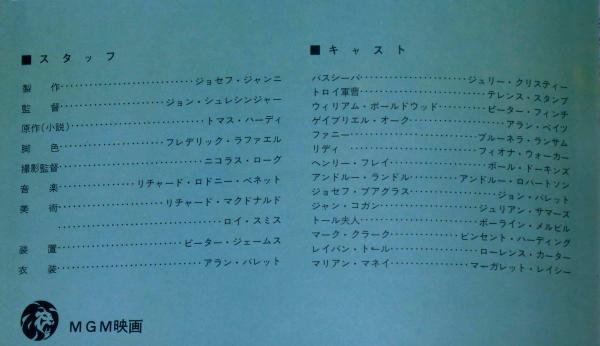 ■スタッフ
製作‥‥‥‥‥‥ジョセフ・ジャンニ
監督‥‥‥‥‥‥ジョン・シュレシンジャー
原作(小説)‥‥‥‥‥‥トマス・ハーディ
脚色‥‥‥‥‥‥フレデリック・ラファエル
撮影監督‥‥‥‥‥‥ニコラス・ローグ
音楽‥‥‥‥‥‥リチャード・ロドニー・ベネット
美術‥‥‥‥‥‥リチャード・マクドナルド
‥‥‥‥‥‥ロイ・スミス
装置‥‥‥‥‥‥ピーター・ジェームス
衣装‥‥‥‥‥‥アラン・バレット
MGM映画
■キャスト
バスシーバ‥‥‥‥‥‥ジュリー・クリスティー
トロイ軍曹‥‥‥‥‥‥テレンス・スタンプ
ウィリアム・ボールドウッド‥‥‥‥‥‥ピーター・フィンチ
ゲイブリエル・オーク‥‥‥‥‥‥アラン・ベイツ
ファニー‥‥‥‥‥‥プルーネラ・ランサム
リディ‥‥‥‥‥‥フィオナ・ウォーカー
ヘンリー・フレイ‥‥‥‥‥‥ポール・ドーキンズ
アンドルー・ランドル‥‥‥‥‥‥アンドルー・ロバートソン
ジョセフ・プアグラス‥‥‥‥‥‥ジョン・バレット
ジャン・コガン‥‥‥‥‥‥ジュリアン・サマーズ
トール夫人‥‥‥‥‥‥ポーライン・メルビル
マーク・クラーク‥‥‥‥‥‥ビンセント・ハーディング
レイバン・トール‥‥‥‥‥‥ローレンス・カーター
マリアン・マネイ‥‥‥‥‥‥マーガレット・レイシー